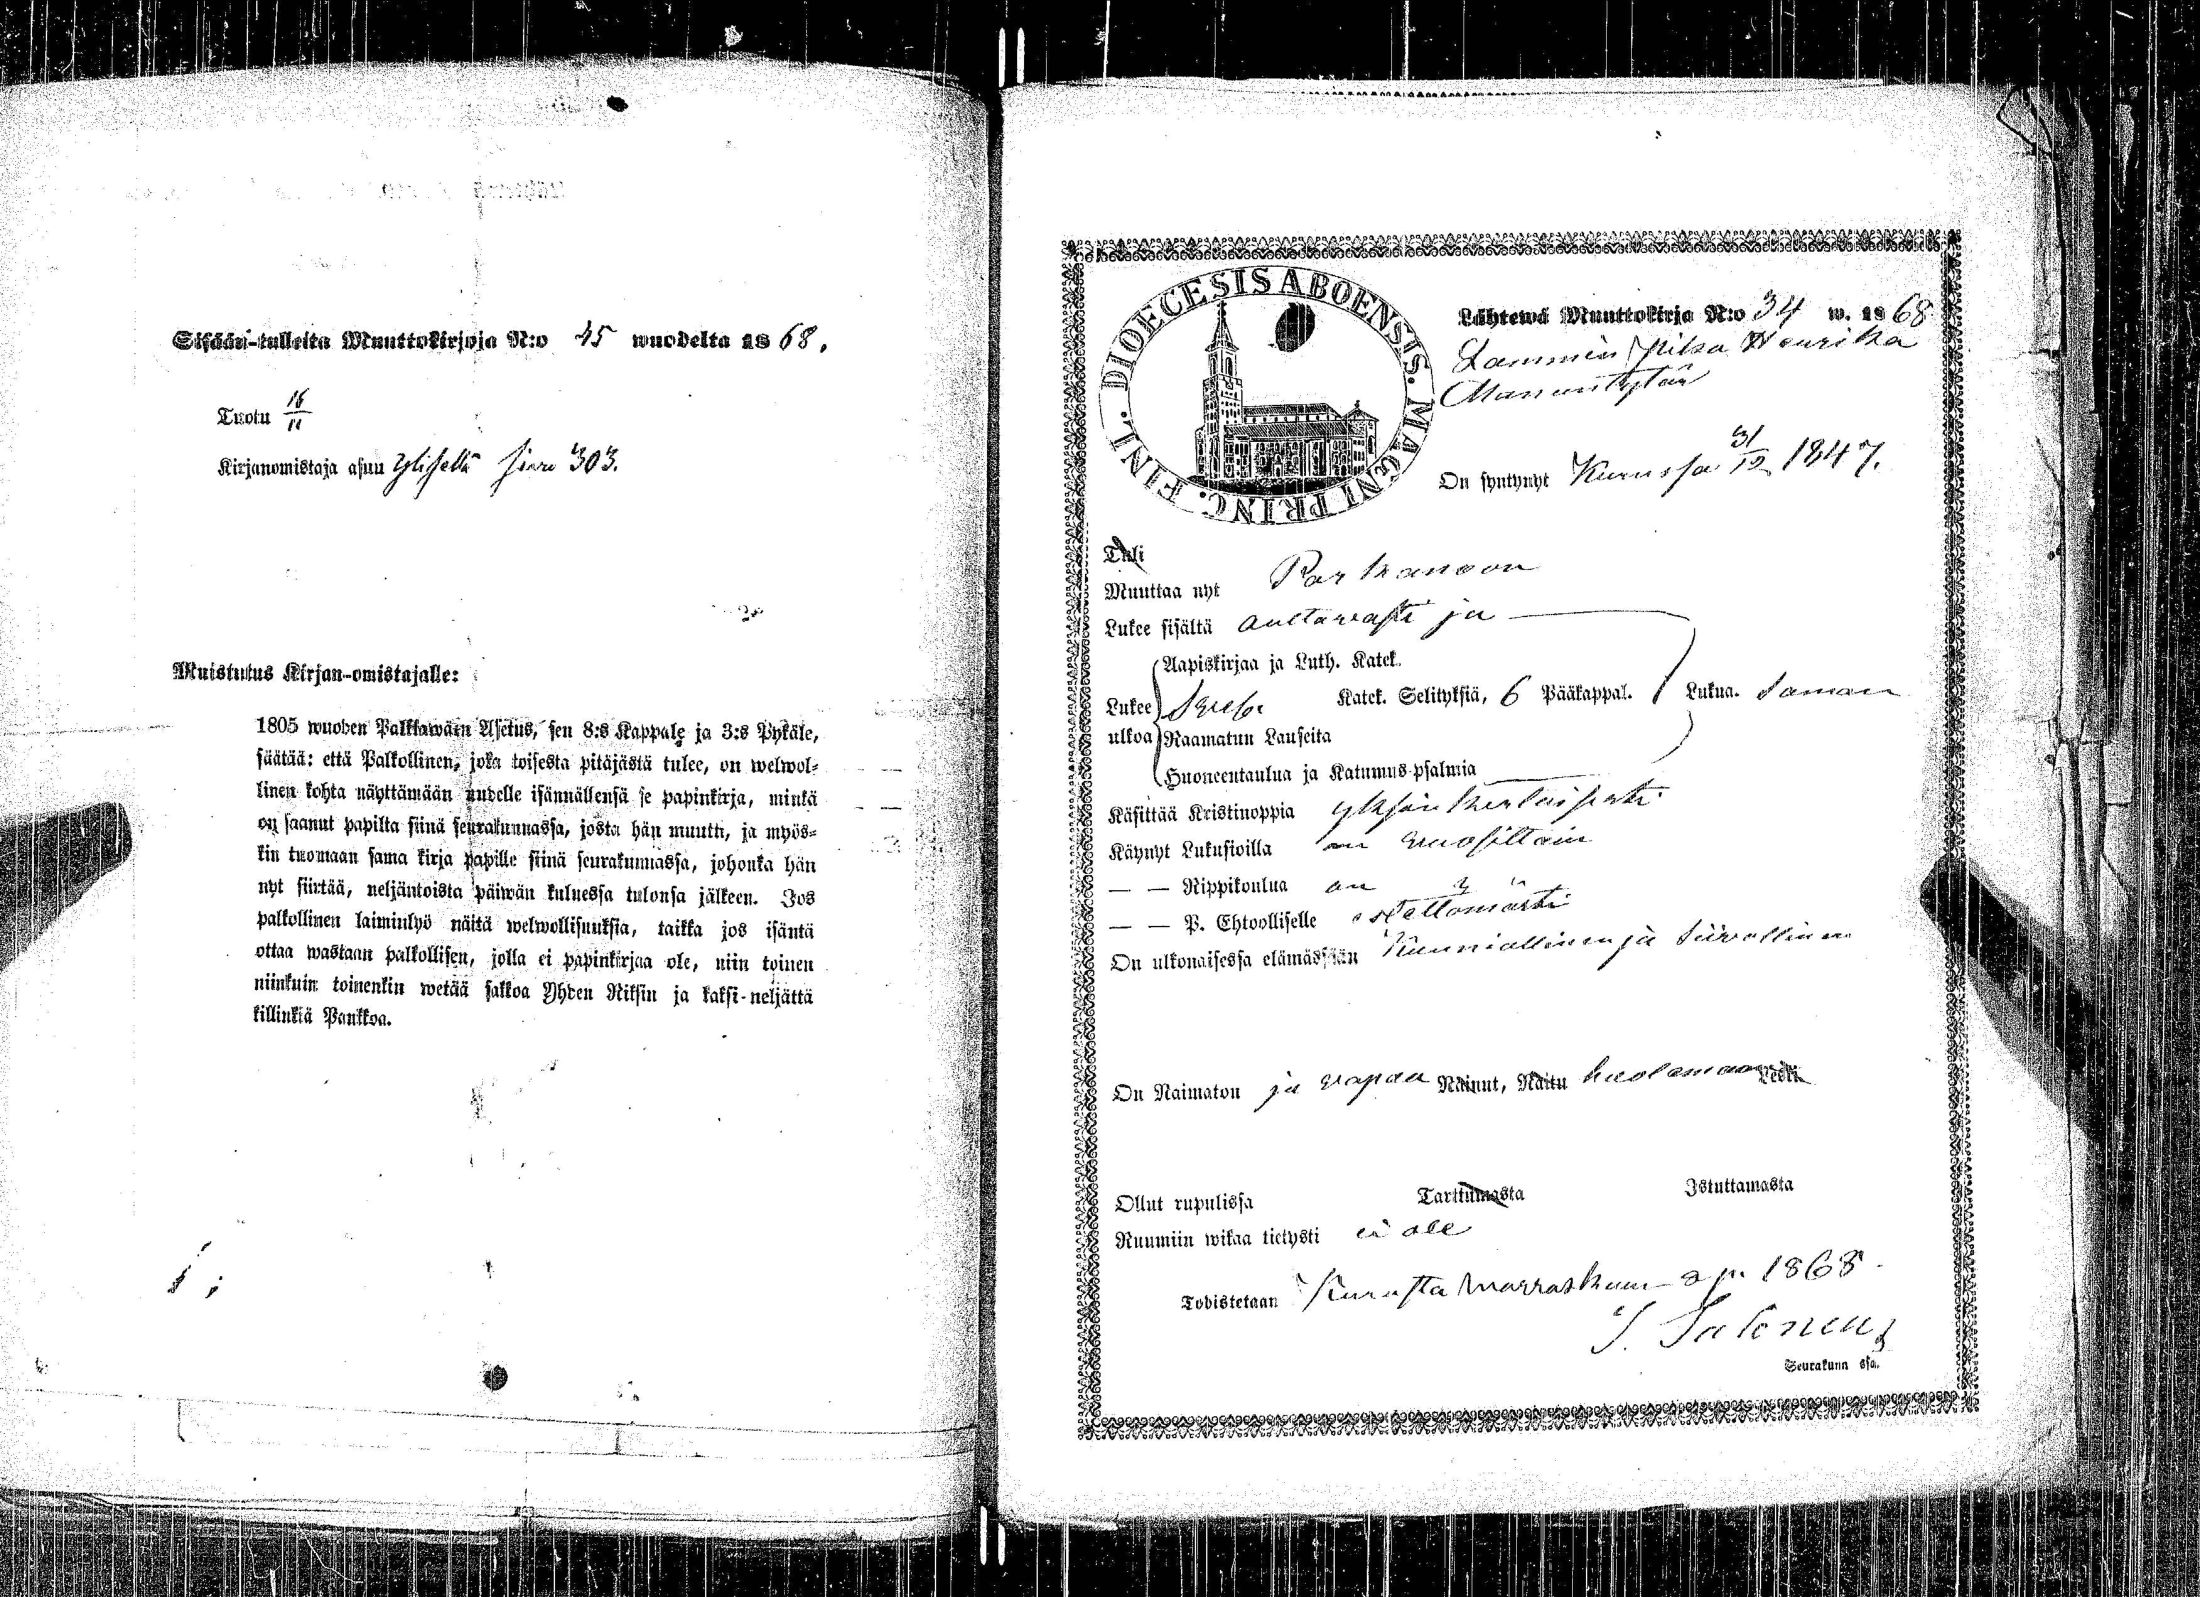 Sisään-tulleita Muuttokirjoja N:o 45 wuodelta 1868.
Tuotu 16/11
Kirjanomistaja asuu Ylisellä sivu 303.
Muistutus Kirjan-omistajalle:
1805 wuoden Palkkawäen Asetus, sen 8:s Kappale ja 3:s Pykäle,
säätää: että Palkollinen, joka toisesta pitäjästä tulee, on welwol-
linen kohta näyttämään uudelle isännällensä se papinkirja, minkä
on saanut papilta siinä seurakunnassa, josta hän muutti, ja myös-
kin tuomaan sama kirja papille siinä seurakunnassa, johonka hän
nyt siirtää, neljäntoista päiwän kuluessa tulonsa jälkeen. Jos
palkollinen laiminlyö näitä welwollisuuksia, taikka jos isäntä
ottaa wastaan palkollisen, jolla ei papinkirjaa ole, niin toinen
niinkuin toinenkin wetää sakkoa Yhden Riksin ja kaksi-neljättä
killinkiä Pankkoa.
DIOECESIS ABOENSIS. MAGNI PRINC. FINL.
Lähtewä Muuttokirja N:o 34 w. 1868
Lammin Piika Henrika
Manuntytär
On syntynyt Kurussa 31/12 1847.
Tuli
Muuttaa nyt Parkanoon
Lukee sisältä auttawasti ja
Aapiskirjaa ja Luth. Katek.
Lukee ulkoa Katek. Selityksiä, 6 Pääkappal. Lukua. saman
Raamatun Lauseita
Huoneentaulua ja Katumus-psalmia
Käsittää Kristinoppia yksinkertaisesti
Käynyt Lukusioilla on wuosittain
— — Rippikoulua on
— — P. Ehtoolliselle
On ulkonaisessa elämässään Kunniallinen ja siiwollinen
On Naimaton ja wapaa Nainut, Naitu huolemaan Leski
Ollut rupulissa Tarttumasta Istuttamasta
Ruumiin wikaa tietysti ei ole
Todistetaan Kurusta Marraskuun 2 p. 1868.
J. Salonen
Seurakunn ssa.